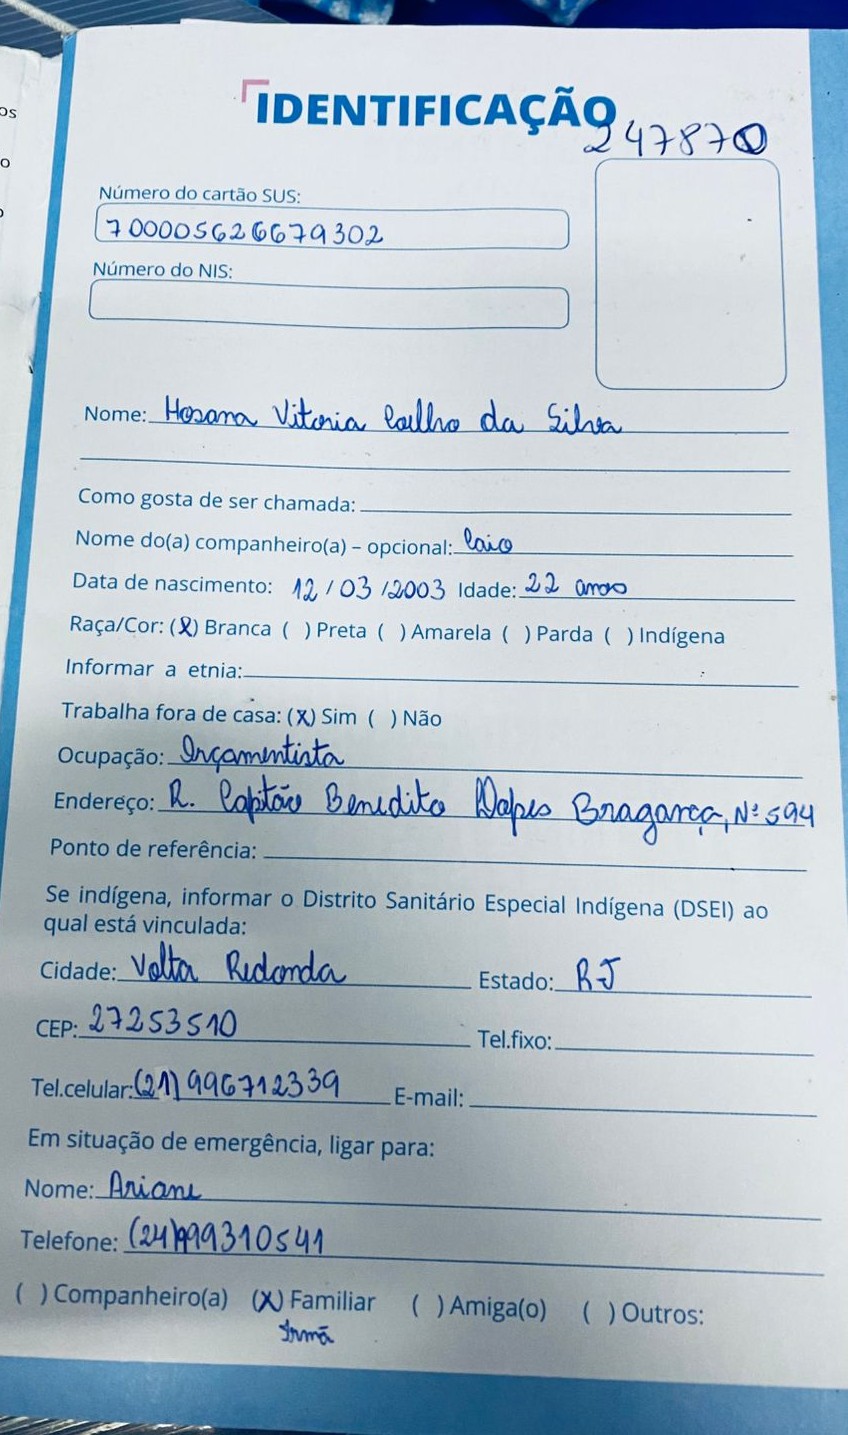 os
o
IDENTIFICAÇÃO
247870
Número do cartão SUS:
700005626679302
Número do NIS:
Nome: Hosana Vitoria Coelho da Silva
Como gosta de ser chamada:
Nome do(a) companheiro(a) – opcional: Caio
Data de nascimento: 12/03/2003 Idade: 22 anos
Raça/Cor: (X) Branca ( ) Preta ( ) Amarela ( ) Parda ( ) Indígena
Informar a etnia:
Trabalha fora de casa: (X) Sim ( ) Não
Ocupação: Orçamentista
Endereço: R. Capitão Benedito Lopes Bragança, Nº 594
Ponto de referência:
Se indígena, informar o Distrito Sanitário Especial Indígena (DSEI) ao
qual está vinculada:
Cidade: Volta Redonda Estado: RJ
CEP: 27253510 Tel.fixo:
Tel.celular: (21) 996712339 E-mail:
Em situação de emergência, ligar para:
Nome: Ariane
Telefone: (24)999310541
( ) Companheiro(a) (X) Familiar ( ) Amiga(o) ( ) Outros:
Irmã